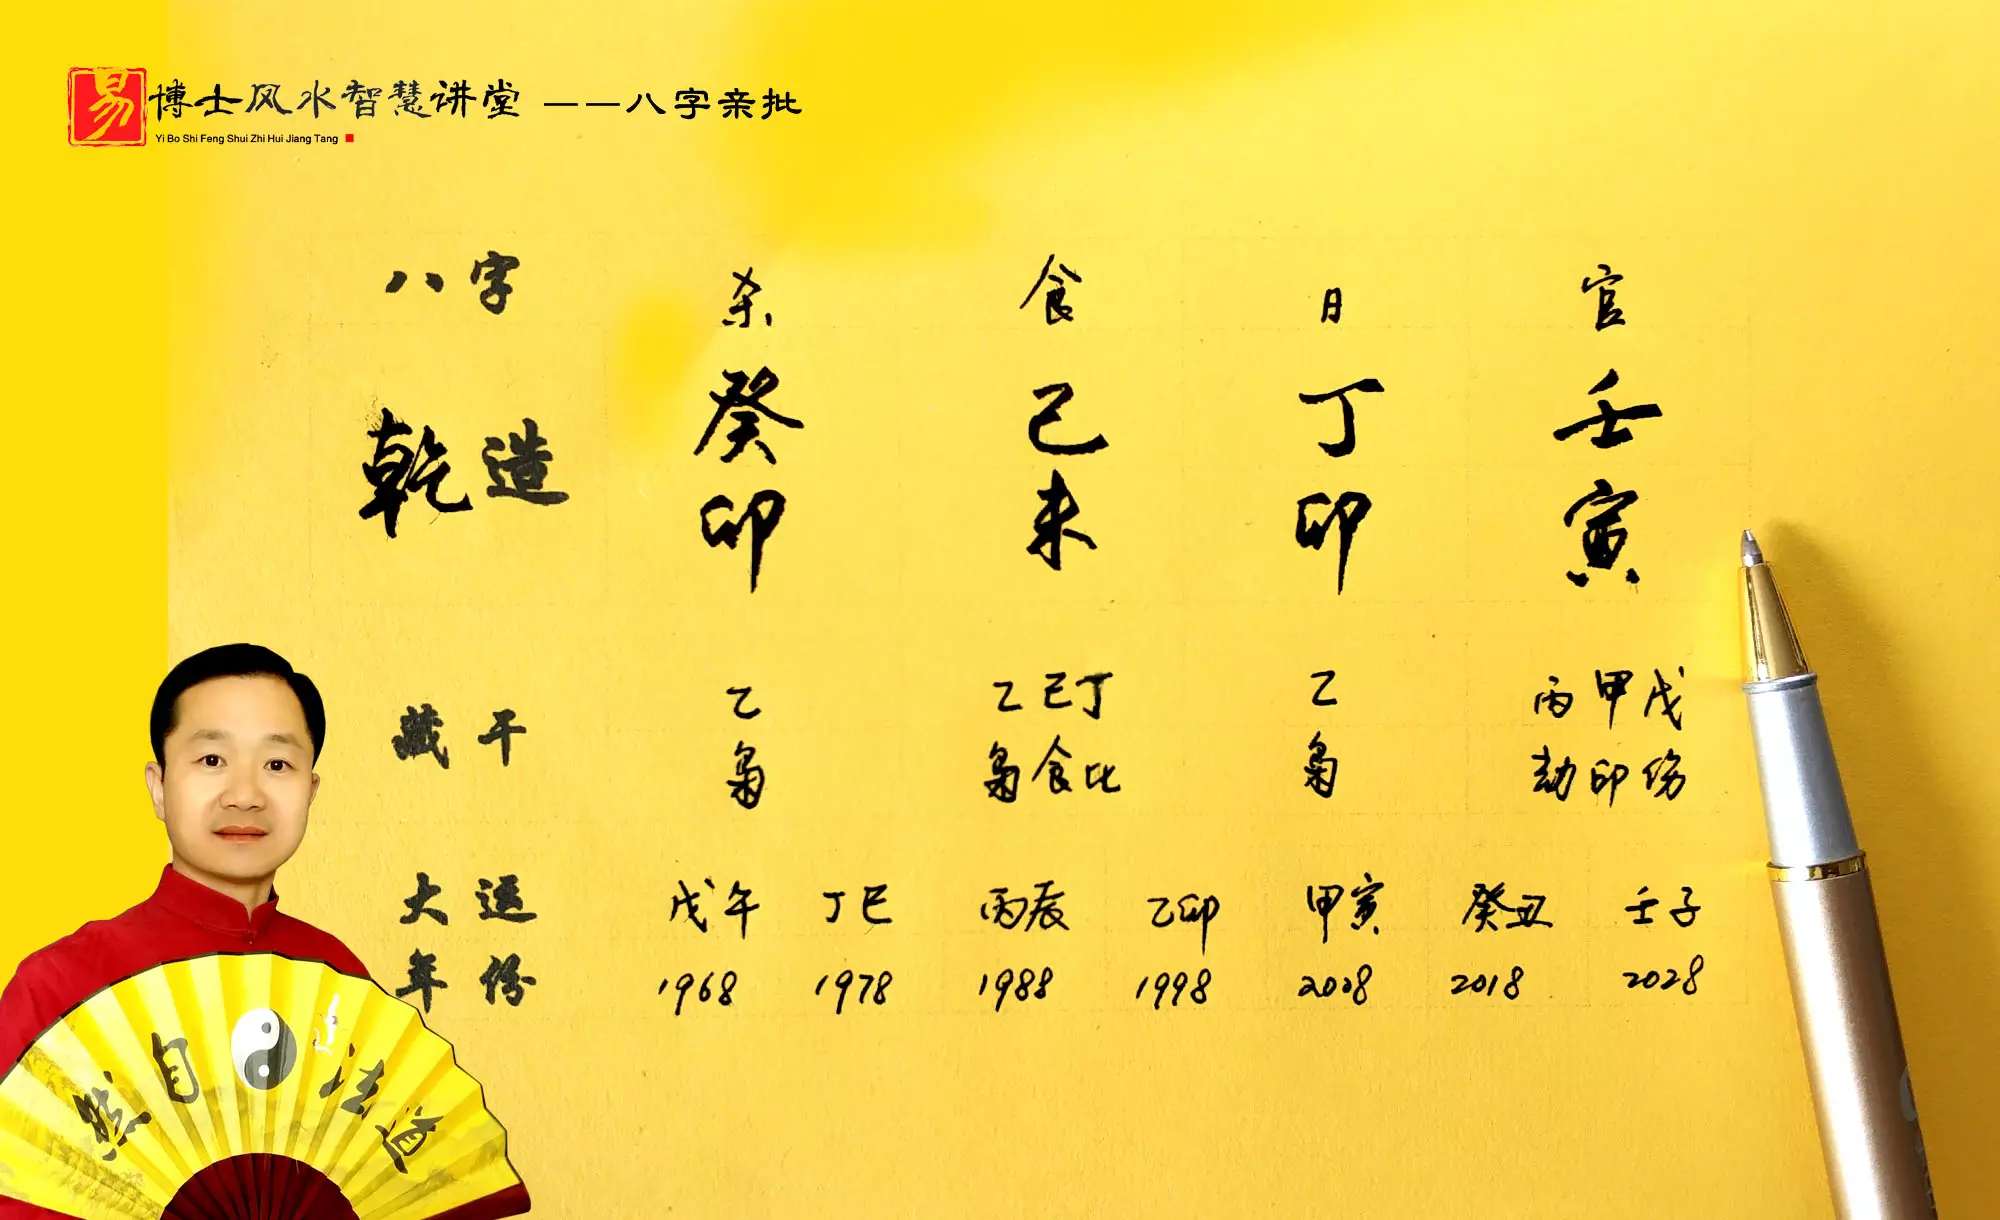 易博士风水智慧讲堂 ——八字亲批
Yi Bo Shi Feng Shui Zhi Hui Jiang Tang
八字 杀 食 日 官
乾造 癸 己 丁 壬
卯 未 卯 寅
藏干 乙 乙己丁 乙 丙甲戊
枭 枭食比 枭 劫印伤
大运 戊午 丁巳 丙辰 乙卯 甲寅 癸丑 壬子
年份 1968 1978 1988 1998 2008 2018 2028
然自法道